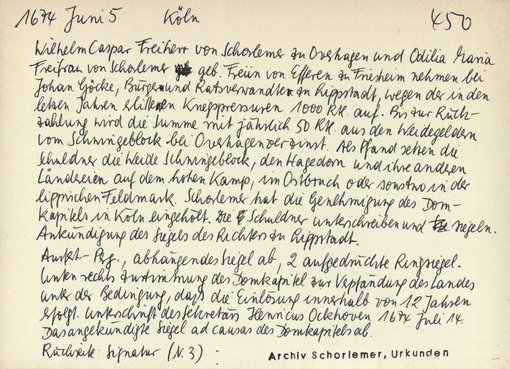 1674 Juni 5 Köln 450
Wilhelm Caspar Freiherr von Schorlemer zu Overhagen und Odilia Maria
Freifrau von Schorlemer geb. Freiin von Efferen zu Friesheim nehmen bei
Johan Göcke, Bürger und Ratsverwandter zu Lippstadt, wegen der in den
letzten Jahren erlittenen 1000 Rtl. auf. Bis zur Rück-
zahlung wird die Summe mit jährlich 50 Rtl. aus den Weidegeldern
vom Schwingeblock bei Overhagen verzinst. Als Pfand setzen die
Schuldner die Weide Schwingeblock, den Hagedorn und ihre anderen
Ländereien auf dem hohen Kamp, im Ostbruch oder sonstwo in der
lippischen Feldmark. Schorlemer hat die Genehmigung des Dom-
kapitels in Köln eingeholt. Die Schuldner unterschreiben und siegeln.
Ankündigung des Siegels des Richters zu Lippstadt.
Ausf.- Perg., abhängendes Siegel ab, 2 aufgedrückte Ringsiegel.
Unten rechts Zustimmung des Domkapitel zur Verpfändung des Landes
unter der Bedingung, daß die Einlösung innerhalb von 12 Jahren
erfolgt. Unterschrift des Sekretärs Henricus Ockhoven 1674 Juli 14.
Das angekündigte Siegel ad causas des Domkapitels ab.
Rückseite: Signatur (N. 3) Archiv Schorlemer, Urkunden